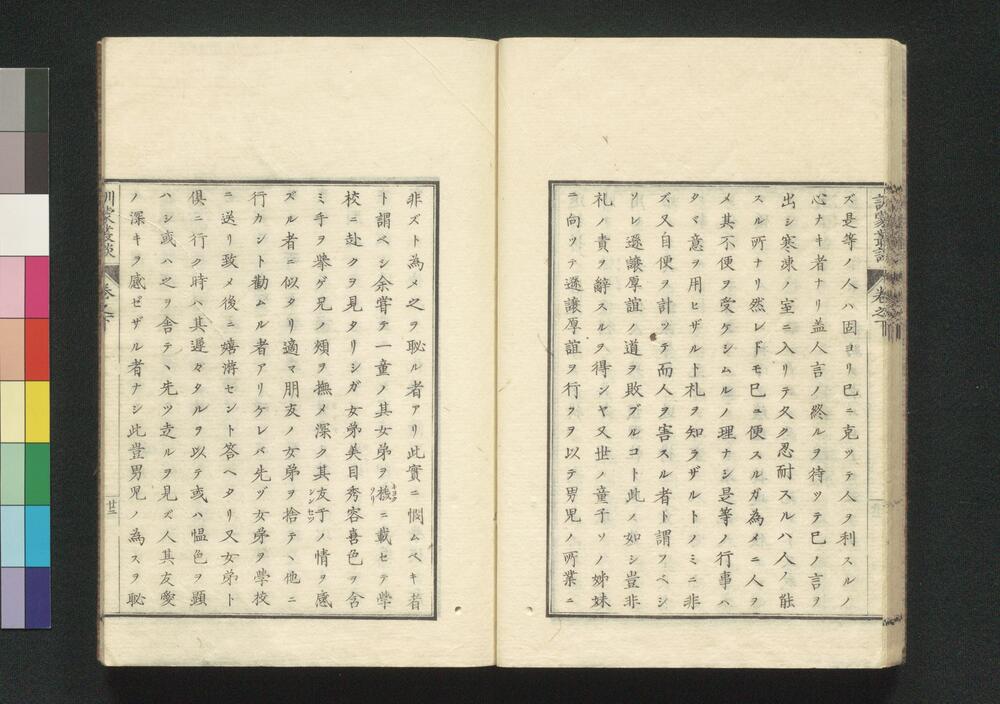 訓蒙叢談 卷之下
ズ是等ノ人ハ固ヨリ已ニ克ツテ人ヲ利スルノ
心ナキ者ナリ盖人言ノ終ルヲ待ツテ已ノ言ヲ
出シ寒凍ノ室ニ入リテ久ク忍耐スルハ人ノ能
スル所ナリ然レドモ已ニ便スルガ為メニ人ヲ
メ其不便ヲ受ケシムルノ理ナシ是等ノ行事ハ
タマ意ヲ用ヒザルト礼ヲ知ラザルトノミニ非
ズ又自便ヲ計ツテ而人ヲ害スル者ト謂フベシ
ソレ遜譲厚誼ノ道ヲ敗ブルコト此ノ如シ豈非
礼ノ責ヲ辭スルヲ得ンヤ又世ノ童子ソノ姊妹
ニ向ツテ遜譲厚誼ヲ行フヲ以テ男児ノ所業ニ
非ズト為メ之ヲ恥ル者アリ此實ニ憫ムベキ者
ト謂ベシ余嘗テ一童ノ其女弟ヲ橇ニ載セテ學
校ニ赴クヲ見タリシガ女弟美目秀容喜色ヲ含
ミ手ヲ擧ゲ兄ノ頰ヲ撫メ深ク其友于ノ情ヲ感
シンセツ
ズル者ニ似タリ適マ朋友ノ女弟ヲ捨テヽ他ニ
行カント勸ムル者アリケレバ先ヅ女弟ヲ學校
ニ送リ致メ後ニ嬉游セント答ヘタリ又女弟ト
俱ニ行ク時ハ其遲々タルヲ以テ或ハ慍色ヲ顕
ハシ或ハ之ヲ舎テヽ先ツ走ルヲ見ズ人其友愛
ノ深キヲ感ゼザル者ナシ此豈男児ノ為スヲ恥
訓蒙叢談 卷之下 廿三